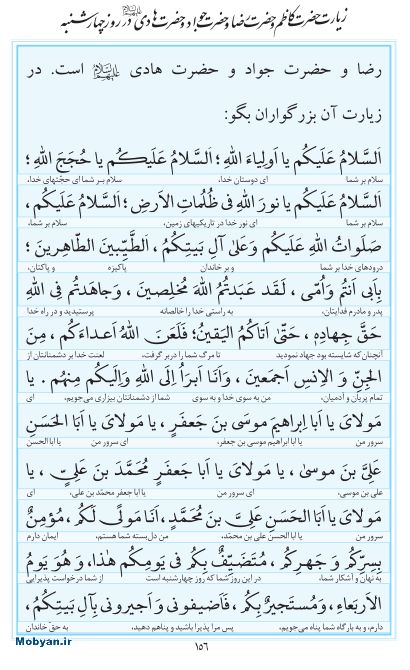 زیارت حضرت کاظم و حضرت رضا و حضرت جواد و حضرت هادی علیهم‌السلام در روز چهارشنبه
رضا و حضرت جواد و حضرت هادی علیهم‌السلام است. در
زیارت آن بزرگواران بگو:
اَلسَّلامُ عَلَیکُم یا اَولِیاءَ اللهِ؛ اَلسَّلامُ عَلَیکُم یا حُجَجَ اللهِ؛
سلام بر شما ای دوستان خدا، سلام بر شما ای حجّتهای خدا،
اَلسَّلامُ عَلَیکُم یا نورَ اللهِ فی ظُلُماتِ الاَرضِ؛ اَلسَّلامُ عَلَیکُم،
سلام بر شما ای نور خدا در تاریکیهای زمین، سلام بر شما،
صَلَواتُ اللهِ عَلَیکُم وَ عَلیٰ آلِ بَیتِکُمُ، الطَّیِّبینَ الطّاهِرینَ؛
درودهای خدا بر شما و بر خاندان پاکیزه و پاکتان،
بِاَبی اَنتُم وَ اُمّی، لَقَد عَبَدتُمُ اللهَ مُخلِصینَ، وَ جاهَدتُم فِی اللهِ
پدر و مادرم فدایتان، به راستی خدا را خالصانه پرستیدید و در راه خدا
حَقَّ جِهادِهِ، حَتّیٰ اَتاکُمُ الیَقینُ؛ فَلَعَنَ اللهُ اَعداءَکُم، مِنَ
آنچنان که شایسته بود جهاد نمودید تا مرگ شما را در بر گرفت، لعنت خدا بر دشمنانتان از
الجِنِّ وَ الاِنسِ اَجمَعینَ، وَ اَنَا اَبرَأُ اِلَی اللهِ وَ اِلَیکُم مِنهُم. یا
تمام پریان و آدمیان، من به سوی خدا و به سوی شما از دشمنانتان بیزاری می‌جویم، ای
مَولایَ یا اَبا اِبراهیمَ موسَی بنَ جَعفَرٍ، یا مَولایَ یا اَبَا الحَسَنِ
سرور من یا ابا ابراهیم موسی بن جعفر، ای سرور من یا ابا الحسن
عَلِیَّ بنَ موسیٰ، یا مَولایَ یا اَبا جَعفَرٍ مُحَمَّدَ بنَ عَلِیٍّ، یا
علی بن موسی، ای سرور من یا ابا جعفر محمّد بن علی، ای
مَولایَ یا اَبَا الحَسَنِ عَلِیَّ بنَ مُحَمَّدٍ، اَنَا مَولًی لَکُم، مُؤمِنٌ
سرور من یا ابا الحسن علی بن محمّد، من دل‌بسته شما هستم، ایمان دارم
بِسِرِّکُم وَ جَهرِکُم، مُتَضَیِّفٌ بِکُم فی یَومِکُم هٰذا، وَ هُوَ یَومُ
به نهان و آشکار شما، در این روز شما که روز چهارشنبه است از شما درخواست پذیرایی
الاَربَعاءِ، وَ مُستَجیرٌ بِکُم، فَاَضیفونی وَ اَجیرونی بِآلِ بَیتِکُمُ،
دارم، و به بارگاه شما پناه می‌جویم، پس مرا پذیرا باشید و پناهم دهید، به حقّ خاندان
۱۵٦
Mobyan.ir